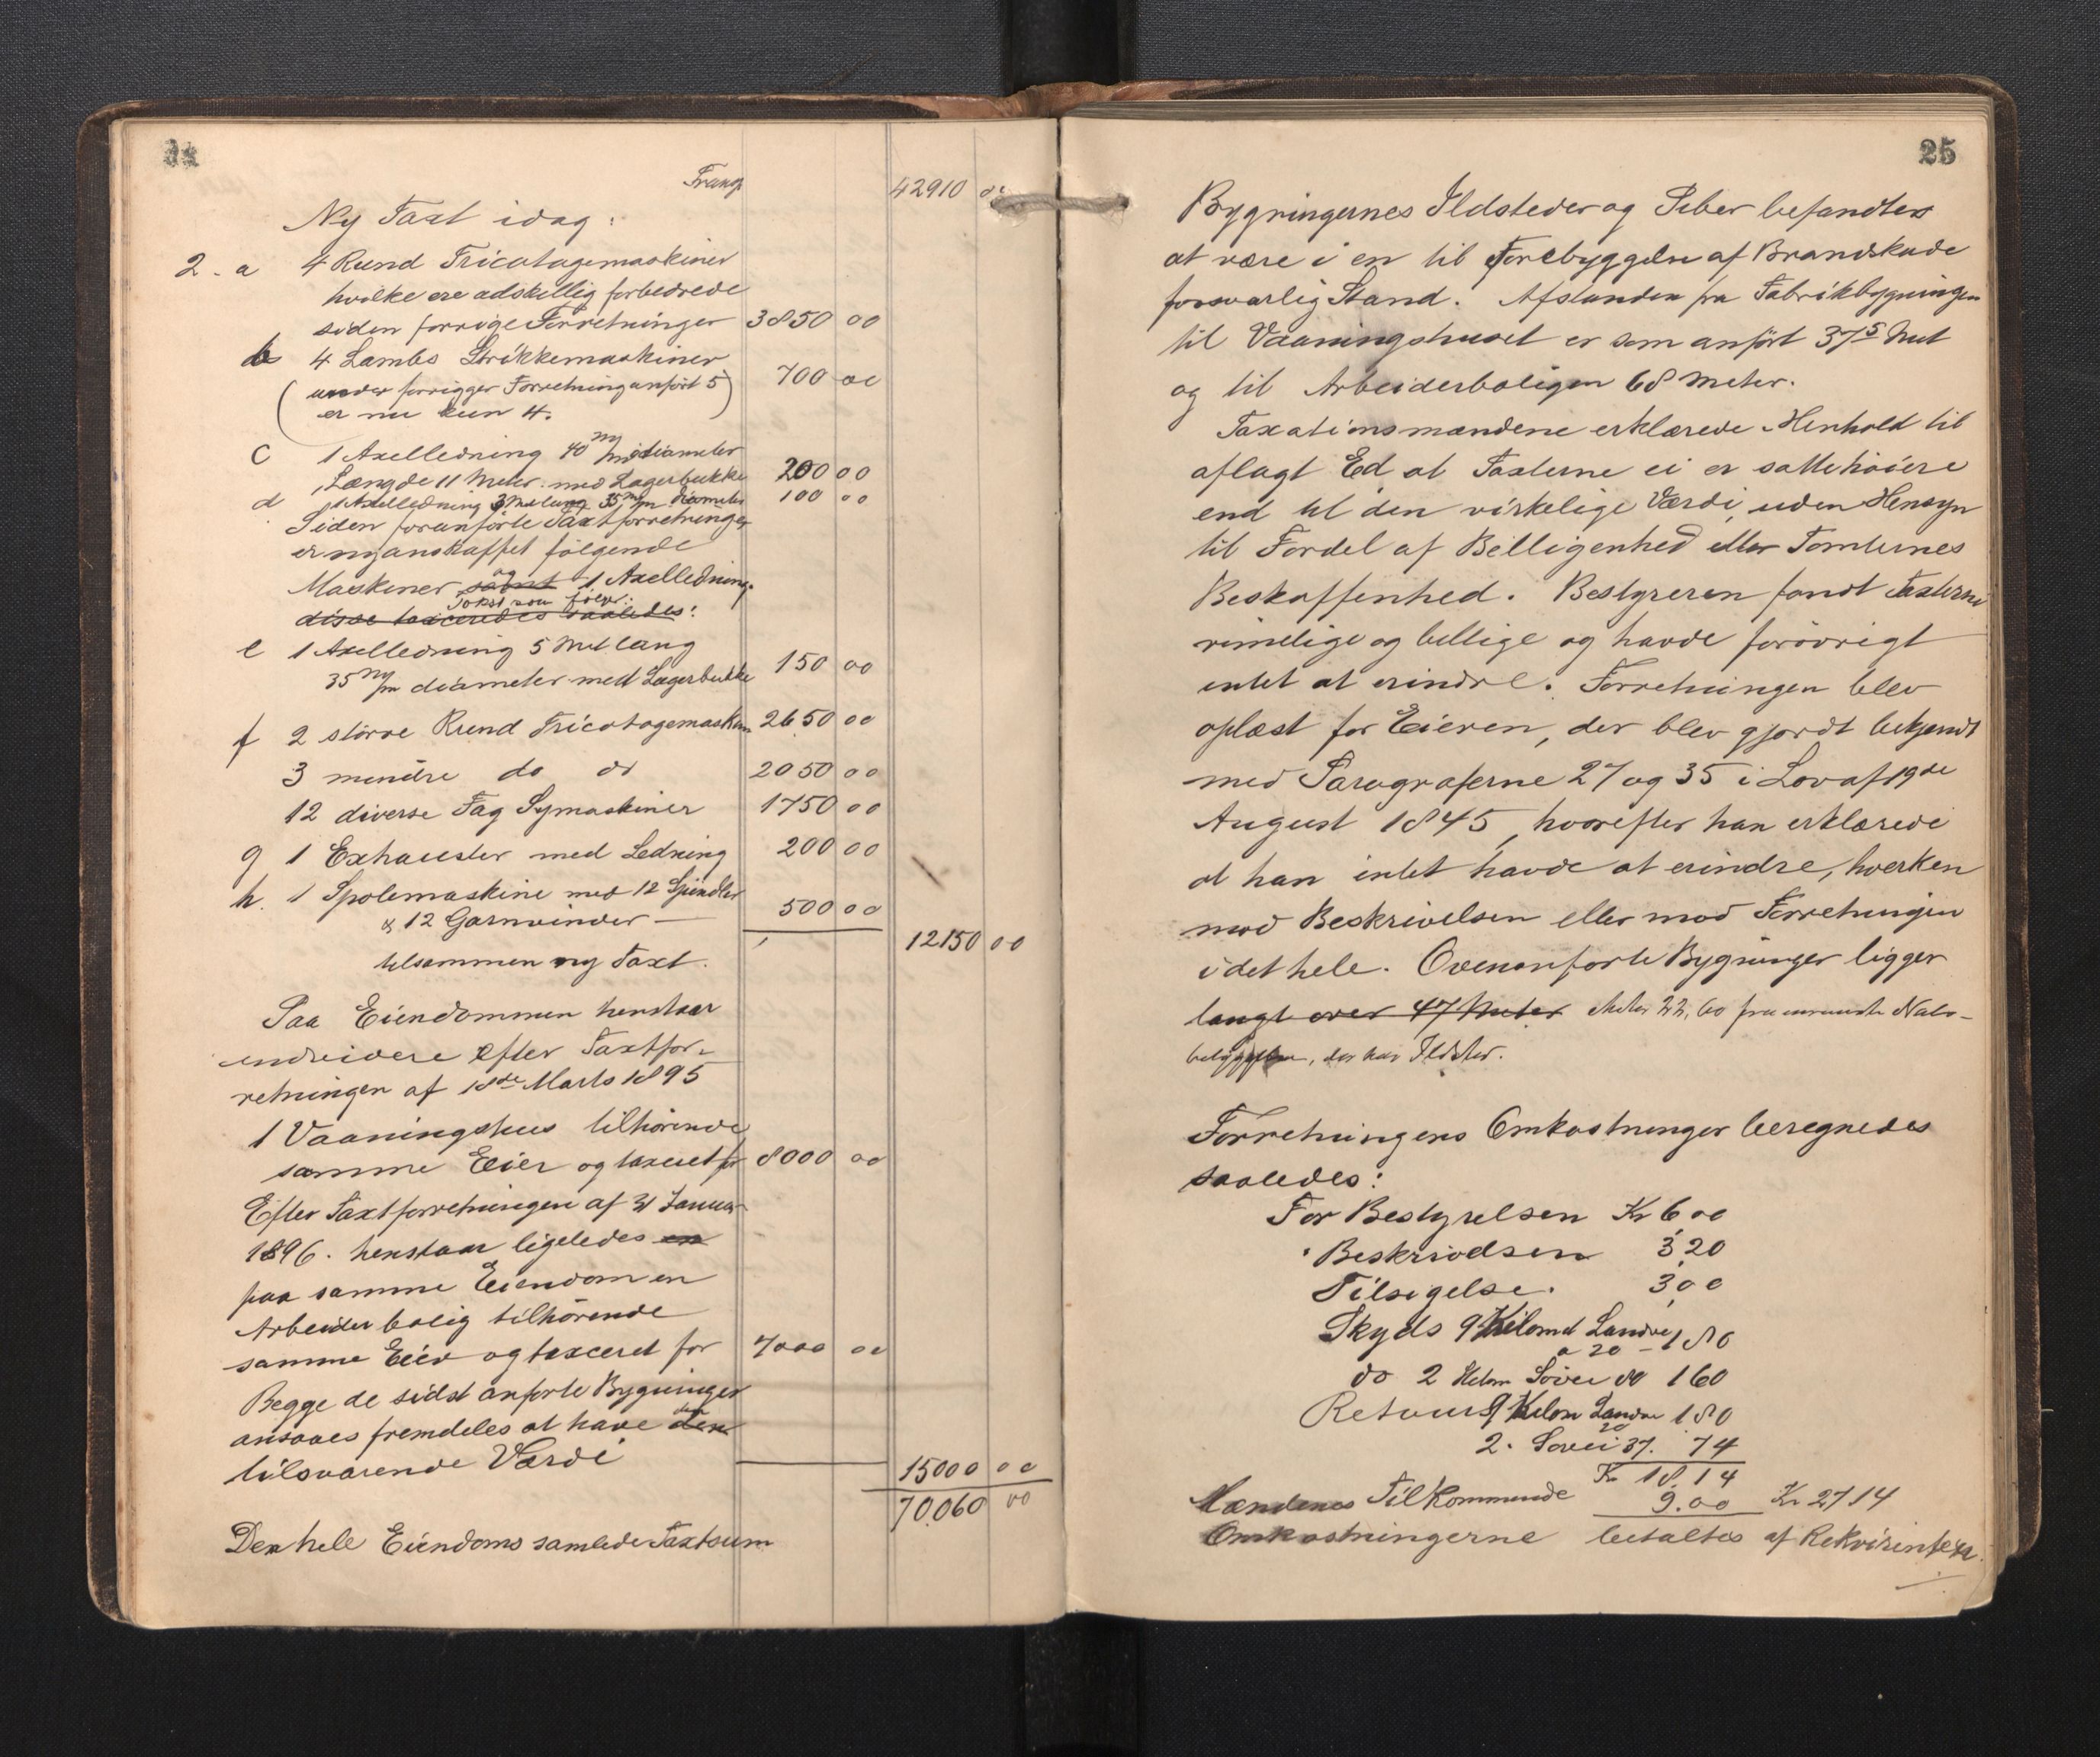 Transp 42910 00
Ny Taxt idag:
2. a 4 Rund Tricotagemaskiner
hvilke ere adskillig forbedrede
siden forrige Forretninger 3850 00
b 4 Lambs Strikkemaskiner 700 00
(under forrigger Forretning anført 5)
er nu kun 4.
c 1 Axelledning 40 m/m diameter
Længde 11 Meter med Lagerbukke 200 00
d 1 Axelledning 3 Met lang 35 m/m diameter 100 00
Siden foranførte Taxtforretninger
er nyanskaffet følgende
Maskiner samt og 1 Axelledning.
disse taxceredes saaledes: Taxt som følger:
e 1 Axelledning 5 Met lang
35 m/m diameter med Lagerbukke 150 00
f 2 større Rund Tricotagemaskin 2650 00
3 mindre do do 2050 00
12 diverse Fag Symaskiner 1750 00
g 1 Exhauster med Ledning 200 00
h. 1 Spolemaskine med 12 Spindler
& 12 Garnvinder — 500 00
tilsammen ny Taxt. 12150 00
Paa Eiendommen henstaar
endvidere efter Taxtfor-
retningen af 18de Marts 1895
1 Vaaningshus tilhørende
samme Eier og taxeret for 8000 00
Efter Taxtforretningen af 31 Januar
1896. henstaar ligeledes en
paa samme Eiendom en
Arbeider bolig tilhørende
samme Eier og taxceret for 7000 00
Begge de sidst anførte Bygninger
ansaaes fremdeles at have den
tilsvarende Værdi 15000 00
70.060 00
Den hele Eiendoms samlede Taxtsum
25
Bygningernes Ildsteder og Piber befandtes
at være i en til Forebyggelse af Brandskade
forsvarlig Stand. Afstanden fra Fabrikbygningen
til Vaaningshuset er som anført 375 Met
og til Arbeiderboligen 68 Meter.
Taxationsmændene erklærede i Henhold til
aflagt Ed at Taxterne ei er satte høiere
end til den virkelige Værdi, uden Hensyn
til Fordel af Beliggenhed eller Tomternes
Beskaffenhed. Bestyreren fandt Taxterne
rimelige og billige og havde forøvrigt
intet at erindre. Forretningen blev
oplæst for Eieren, der blev gjordt bekjendt
med Paragraferne 27 og 35 i Lov af 19de
August 1845, hvorefter han erklærede
at han intet havde at erindre, hverken
mod Beskrivelsen eller mod Forretningen
i det hele. Ovenanførte Bygninger ligger
langt over 47 Meter Meter 22,60 fra nærmeste Nabo-
bebyggelse, der har Ildsted.
Forretningens Omkostninger beregnedes
saaledes:
For Bestyrelsen Kr 6,00
" Beskrivelsen 3,20
Tilsigelse. 3,00
Skyds 9 Kilomet Landvei
a 20 - 1 80
do 2 Kilom Søvei do 1 60
Retour 9 Kilom Landv 1 80
20
2. Søvei 37. 74
Kr 18,14
Mændenes Tilkommende 9.00 Kr 27 14
Omkostningerne betaltes af Rekvirenten.